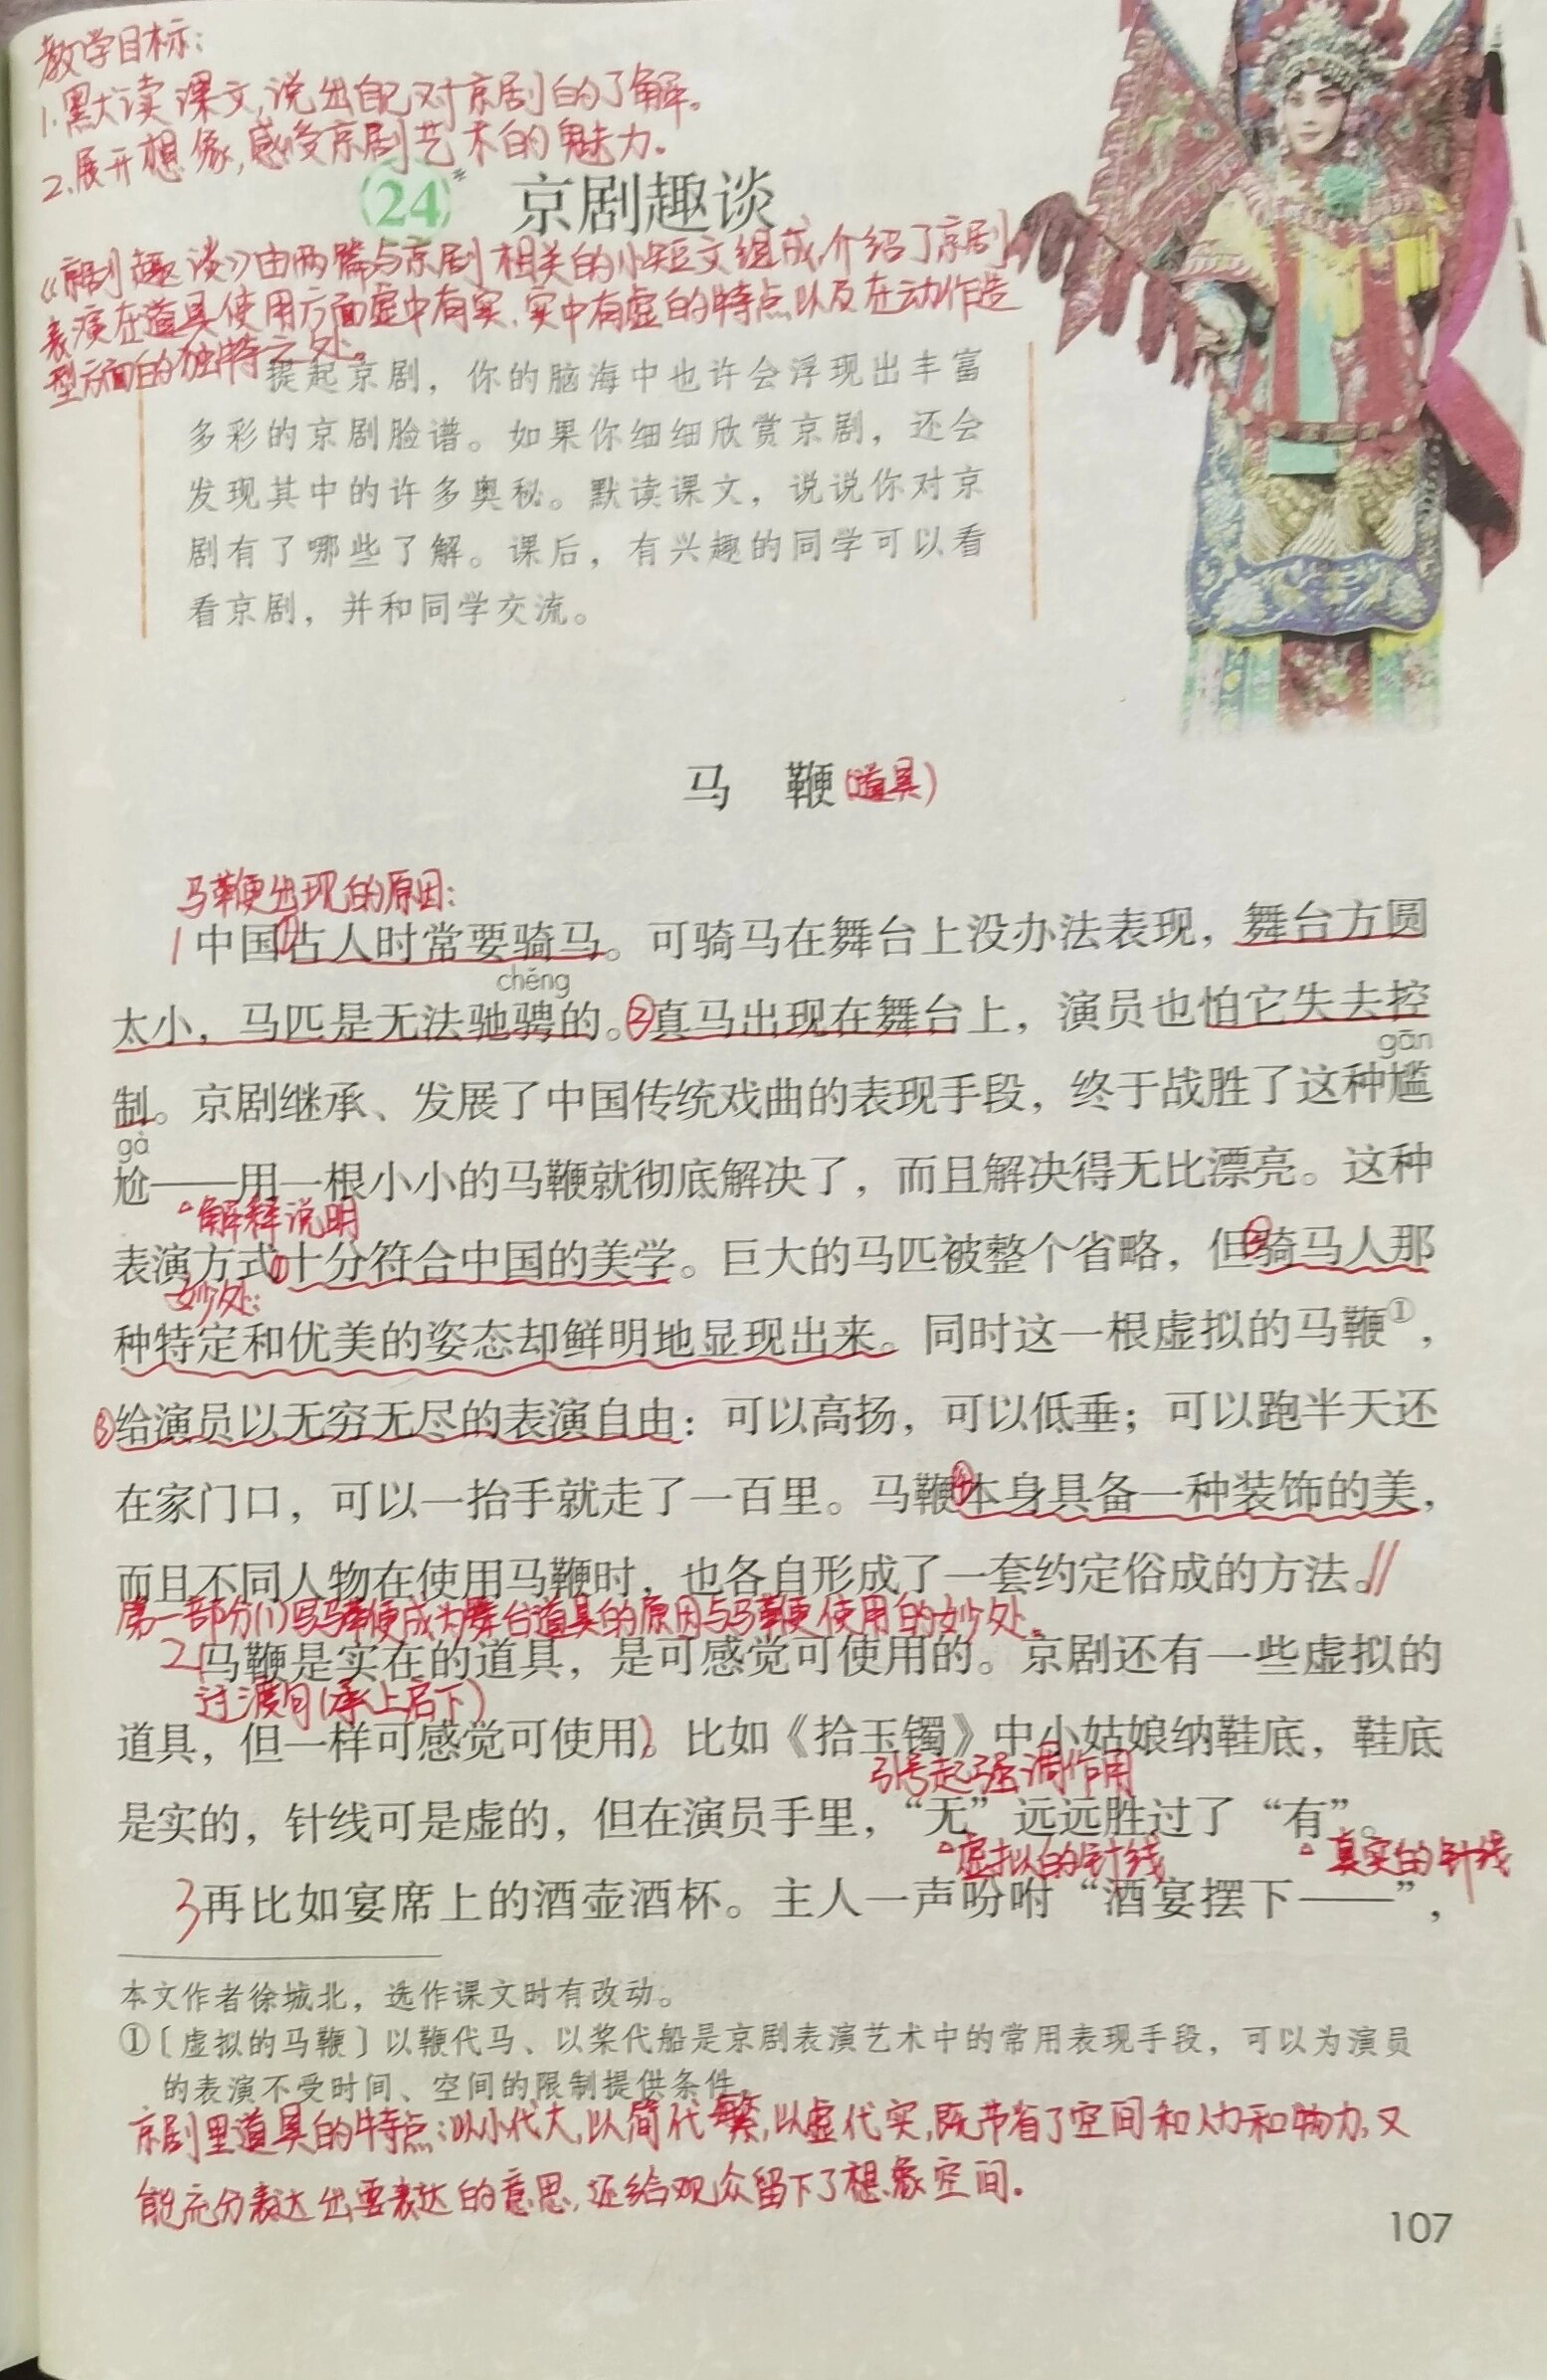 教学目标:
1.默读课文,说出自己对京剧的了解。
2.展开想像,感受京剧艺术的魅力。
24* 京剧趣谈
《京剧趣谈》由两篇与京剧相关的小短文组成,介绍了京剧
表演在道具使用方面虚中有实、实中有虚的特点以及在动作造
型方面的独特之处。
提起京剧，你的脑海中也许会浮现出丰富
多彩的京剧脸谱。如果你细细欣赏京剧，还会
发现其中的许多奥秘。默读课文，说说你对京
剧有了哪些了解。课后，有兴趣的同学可以看
看京剧，并和同学交流。
马 鞭(道具)
马鞭出现的原因:
1中国①古人时常要骑马。可骑马在舞台上没办法表现，舞台方圆
chěng
太小，马匹是无法驰骋的。②真马出现在舞台上，演员也怕它失去控
gān
制。京剧继承、发展了中国传统戏曲的表现手段，终于战胜了这种尴
gà
尬——用一根小小的马鞭就彻底解决了，而且解决得无比漂亮。这种
解释说明
表演方式①十分符合中国的美学。巨大的马匹被整个省略，但②骑马人那
妙处:
种特定和优美的姿态却鲜明地显现出来。同时这一根虚拟的马鞭①，
③给演员以无穷无尽的表演自由：可以高扬，可以低垂；可以跑半天还
在家门口，可以一抬手就走了一百里。马鞭④本身具备一种装饰的美，
而且不同人物在使用马鞭时，也各自形成了一套约定俗成的方法。//
第一部分(1)写马鞭成为舞台道具的原因与马鞭使用的妙处。
2马鞭是实在的道具，是可感觉可使用的。京剧还有一些虚拟的
过渡句(承上启下)
道具，但一样可感觉可使用。比如《拾玉镯》中小姑娘纳鞋底，鞋底
引号起强调作用
是实的，针线可是虚的，但在演员手里，“无”远远胜过了“有”。
虚拟的针线 真实的针线
3再比如宴席上的酒壶酒杯。主人一声吩咐“酒宴摆下——”，
本文作者徐城北，选作课文时有改动。
①〔虚拟的马鞭〕以鞭代马、以桨代船是京剧表演艺术中的常用表现手段，可以为演员
的表演不受时间、空间的限制提供条件。
京剧里道具的特点:以小代大,以简代繁,以虚代实,既节省了空间和人力和物力,又
能充分表达出要表达的意思,还给观众留下了想象空间。
107